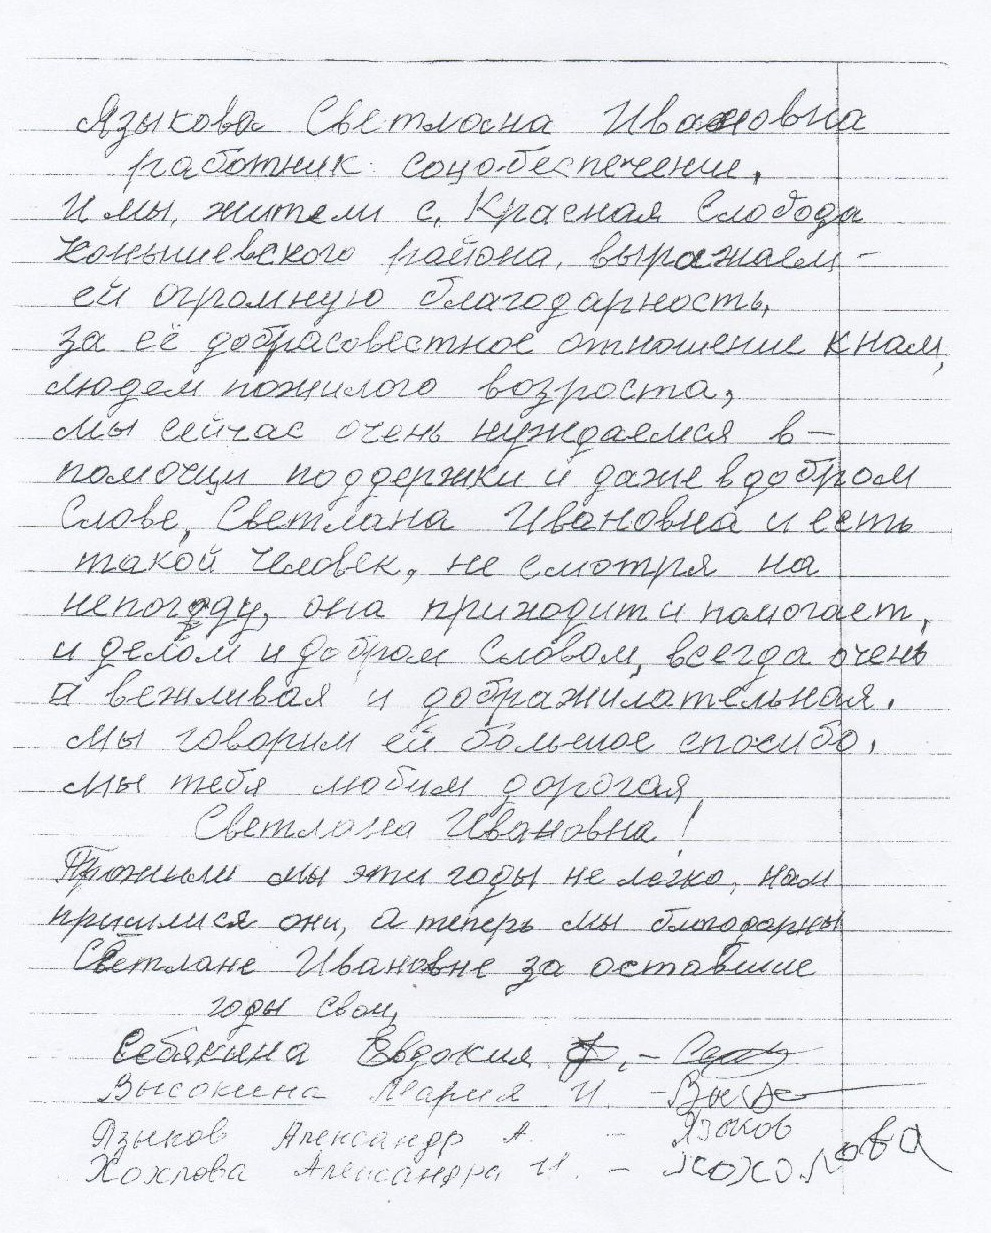 Языкова Светлана Ивановна
работник соцобеспечение,
И мы, жители с. Красная Слобода
Конышевского района, выражаем -
ей огромную благодарность,
за её добрасовестное отношение к нам,
людем пожилого возроста,
мы сейчас очень нуждаемся в -
помощи поддержки и даже в добром
Слове, Светлана Ивановна и есть
такой человек, не смотря на
непогоду, она приходит и помогает,
и делом и добром словом, всегда очень
а вежливая и дображилательная.
мы говорим ей большое спосибо.
мы тебя любим дорогая
Светлана Ивановна!
Прожили мы эти годы не легко, нам
пришлися они, а теперь мы благодарны
Светлане Ивановне за оставшие
годы свои,
Себякина Евдокия -
Высокина Мария И. - Выс
Языков Александр А. - Языков
Хохлова Александра И. - Хохолова